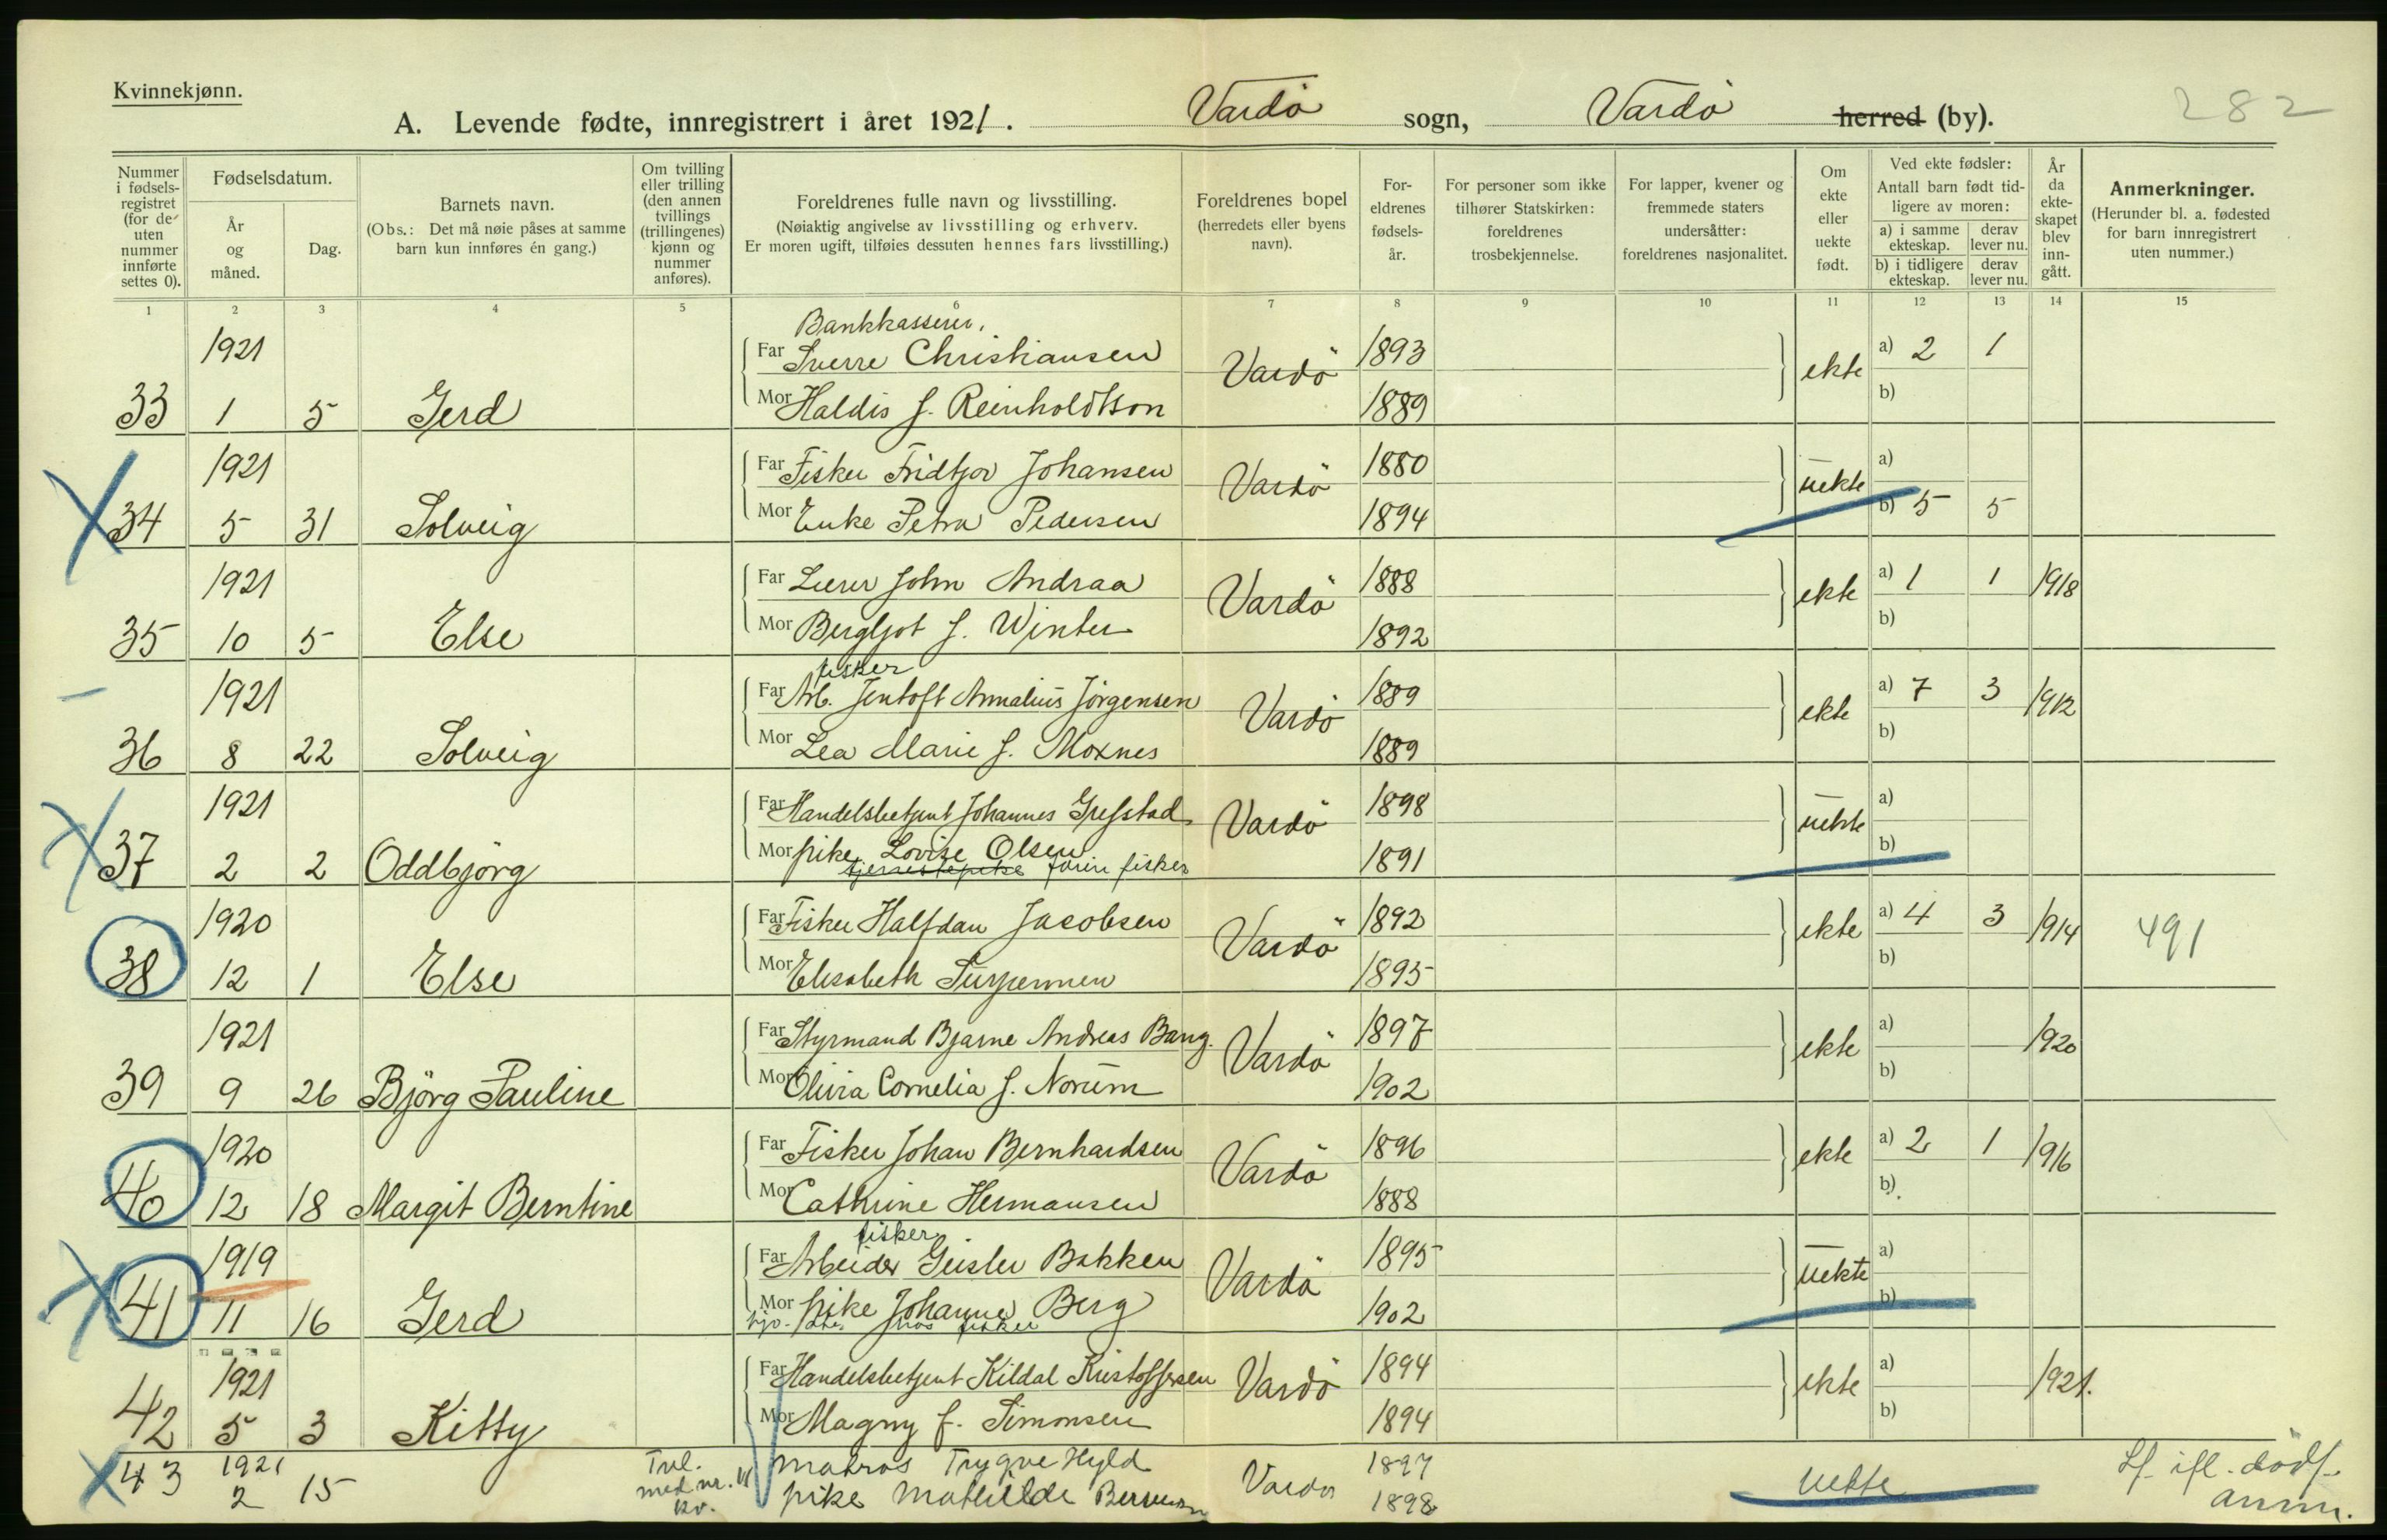 Kvinnekjønn.
A. Levende fødte, innregistrert i året 1921. Vardö sogn, Vardö herred (by). 282
Nummer i fødselsregistret (for de uten nummer innførte settes 0).
Fødselsdatum.
År og måned.
Dag.
Barnets navn.
(Obs.: Det må nøie påses at samme barn kun innføres én gang.)
Om tvilling eller trilling (den annen tvillings (trillingenes) kjønn og nummer anføres).
Foreldrenes fulle navn og livsstilling.
(Nøiaktig angivelse av livsstilling og erhverv. Er moren ugift, tilføies dessuten hennes fars livsstilling.)
Foreldrenes bopel (herredets eller byens navn).
Foreldrenes fødselsår.
For personer som ikke tilhører Statskirken: foreldrenes trosbekjennelse.
For lapper, kvener og fremmede staters undersåtter: foreldrenes nasjonalitet.
Om ekte eller uekte født.
Ved ekte fødsler:
Antall barn født tidligere av moren:
a) i samme ekteskap. derav lever nu.
b) i tidligere ekteskap. derav lever nu.
År da ekteskapet blev inngått.
Anmerkninger.
(Herunder bl. a. fødested for barn innregistrert uten nummer.)
1 2 3 4 5 6 7 8 9 10 11 12 13 14 15
Bankkasserer,
1921 Far Sverre Christiansen Vardö 1893 ekte a) 2 1
33 1 5 Gerd Mor Haldis f. Reinholdtson 1889 b)
1921 Far Fisker Fridtjov Johansen Vardö 1880 uekte a)
34 5 31 Solveig Mor Enke Petra Pedersen 1894 b) 5 5
1921 Far Lærer John Andraa Vardö 1888 ekte a) 1 1 1918
35 10 5 Else Mor Bergljot f. Winter 1892 b)
fisker
1921 Far Arb. Jentoft Annalius Jörgensen Vardö 1889 ekte a) 7 3 1912
36 8 22 Solveig Mor Lea Marie f. Moxnes 1889 b)
1921 Far Handelsbetjent Johannes Grefstad Vardö 1898 uekte a)
37 2 2 Oddbjörg Mor pike Lovise Olsen 1891 b)
tjenestepike faren fisker
1920 Far Fisker Halfdan Jacobsen Vardö 1892 ekte a) 4 3 1914 491
38 12 1 Else Mor Elisabeth 1895 b)
1921 Far Styrmand Bjarne Andreas Bang. Vardö 1897 ekte a) 1920
39 9 26 Björg Pauline Mor Olivia Cornelia f. Norum 1902 b)
1920 Far Fisker Johan Bernhardsen Vardö 1896 ekte a) 2 1 1916
40 12 18 Margit Berntine Mor Cathrine Hermansen 1888 b)
fisker
1919 Far Arbeider Geisler Bakken Vardö 1895 uekte a)
41 11 16 Gerd Mor pike Johanne Berg 1902 b)
fisker
1921 Far Handelsbetjent Kildal Kristoffersen Vardö 1894 ekte a) 1921.
42 5 3 Kitty Mor Magny f. Simonsen 1894 b)
43 1921 Tvl. matros Trygve Hyld Vardö 1897 uekte
2 15 med nr. kv. pike Mathilde 1898 anm.